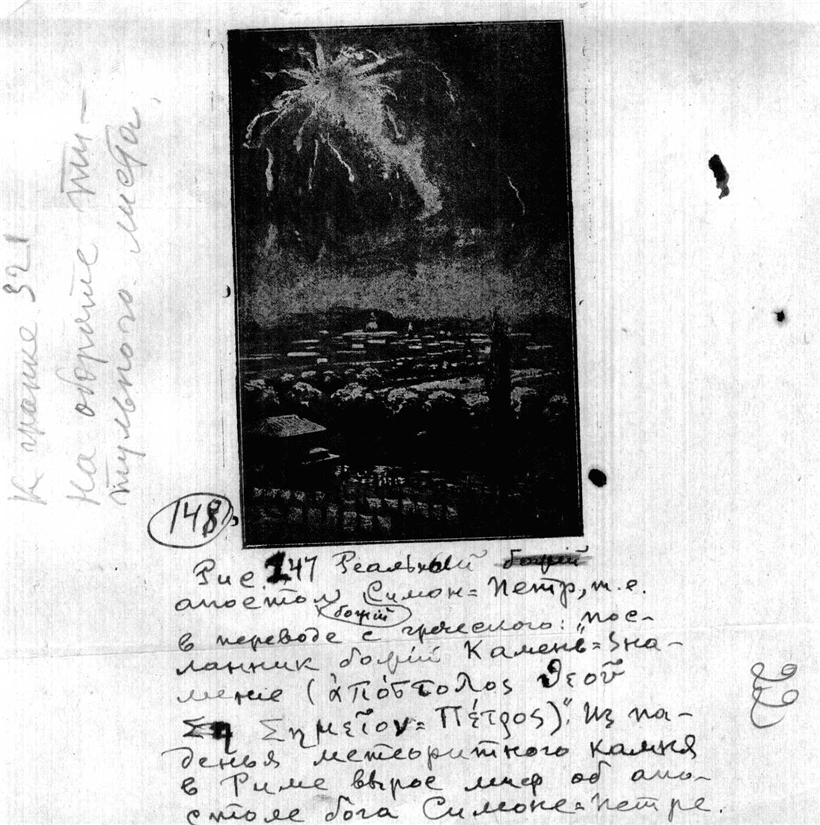 К гранке 321
на обороте ти-
тульного листа.
148
Рис. 147 Реальный божій
апостол божій Симон=Петр, т.е.
в переводе с греческого: "пос-
ланник божій Камень=Зна-
мение (ἀπόστολος Θεοῦ
Ση Σημεῖον=Πέτρος)". Из па-
денья метеоритного камня
в Риме вырос миф об апо-
столе бога Симоне=Петре.
22